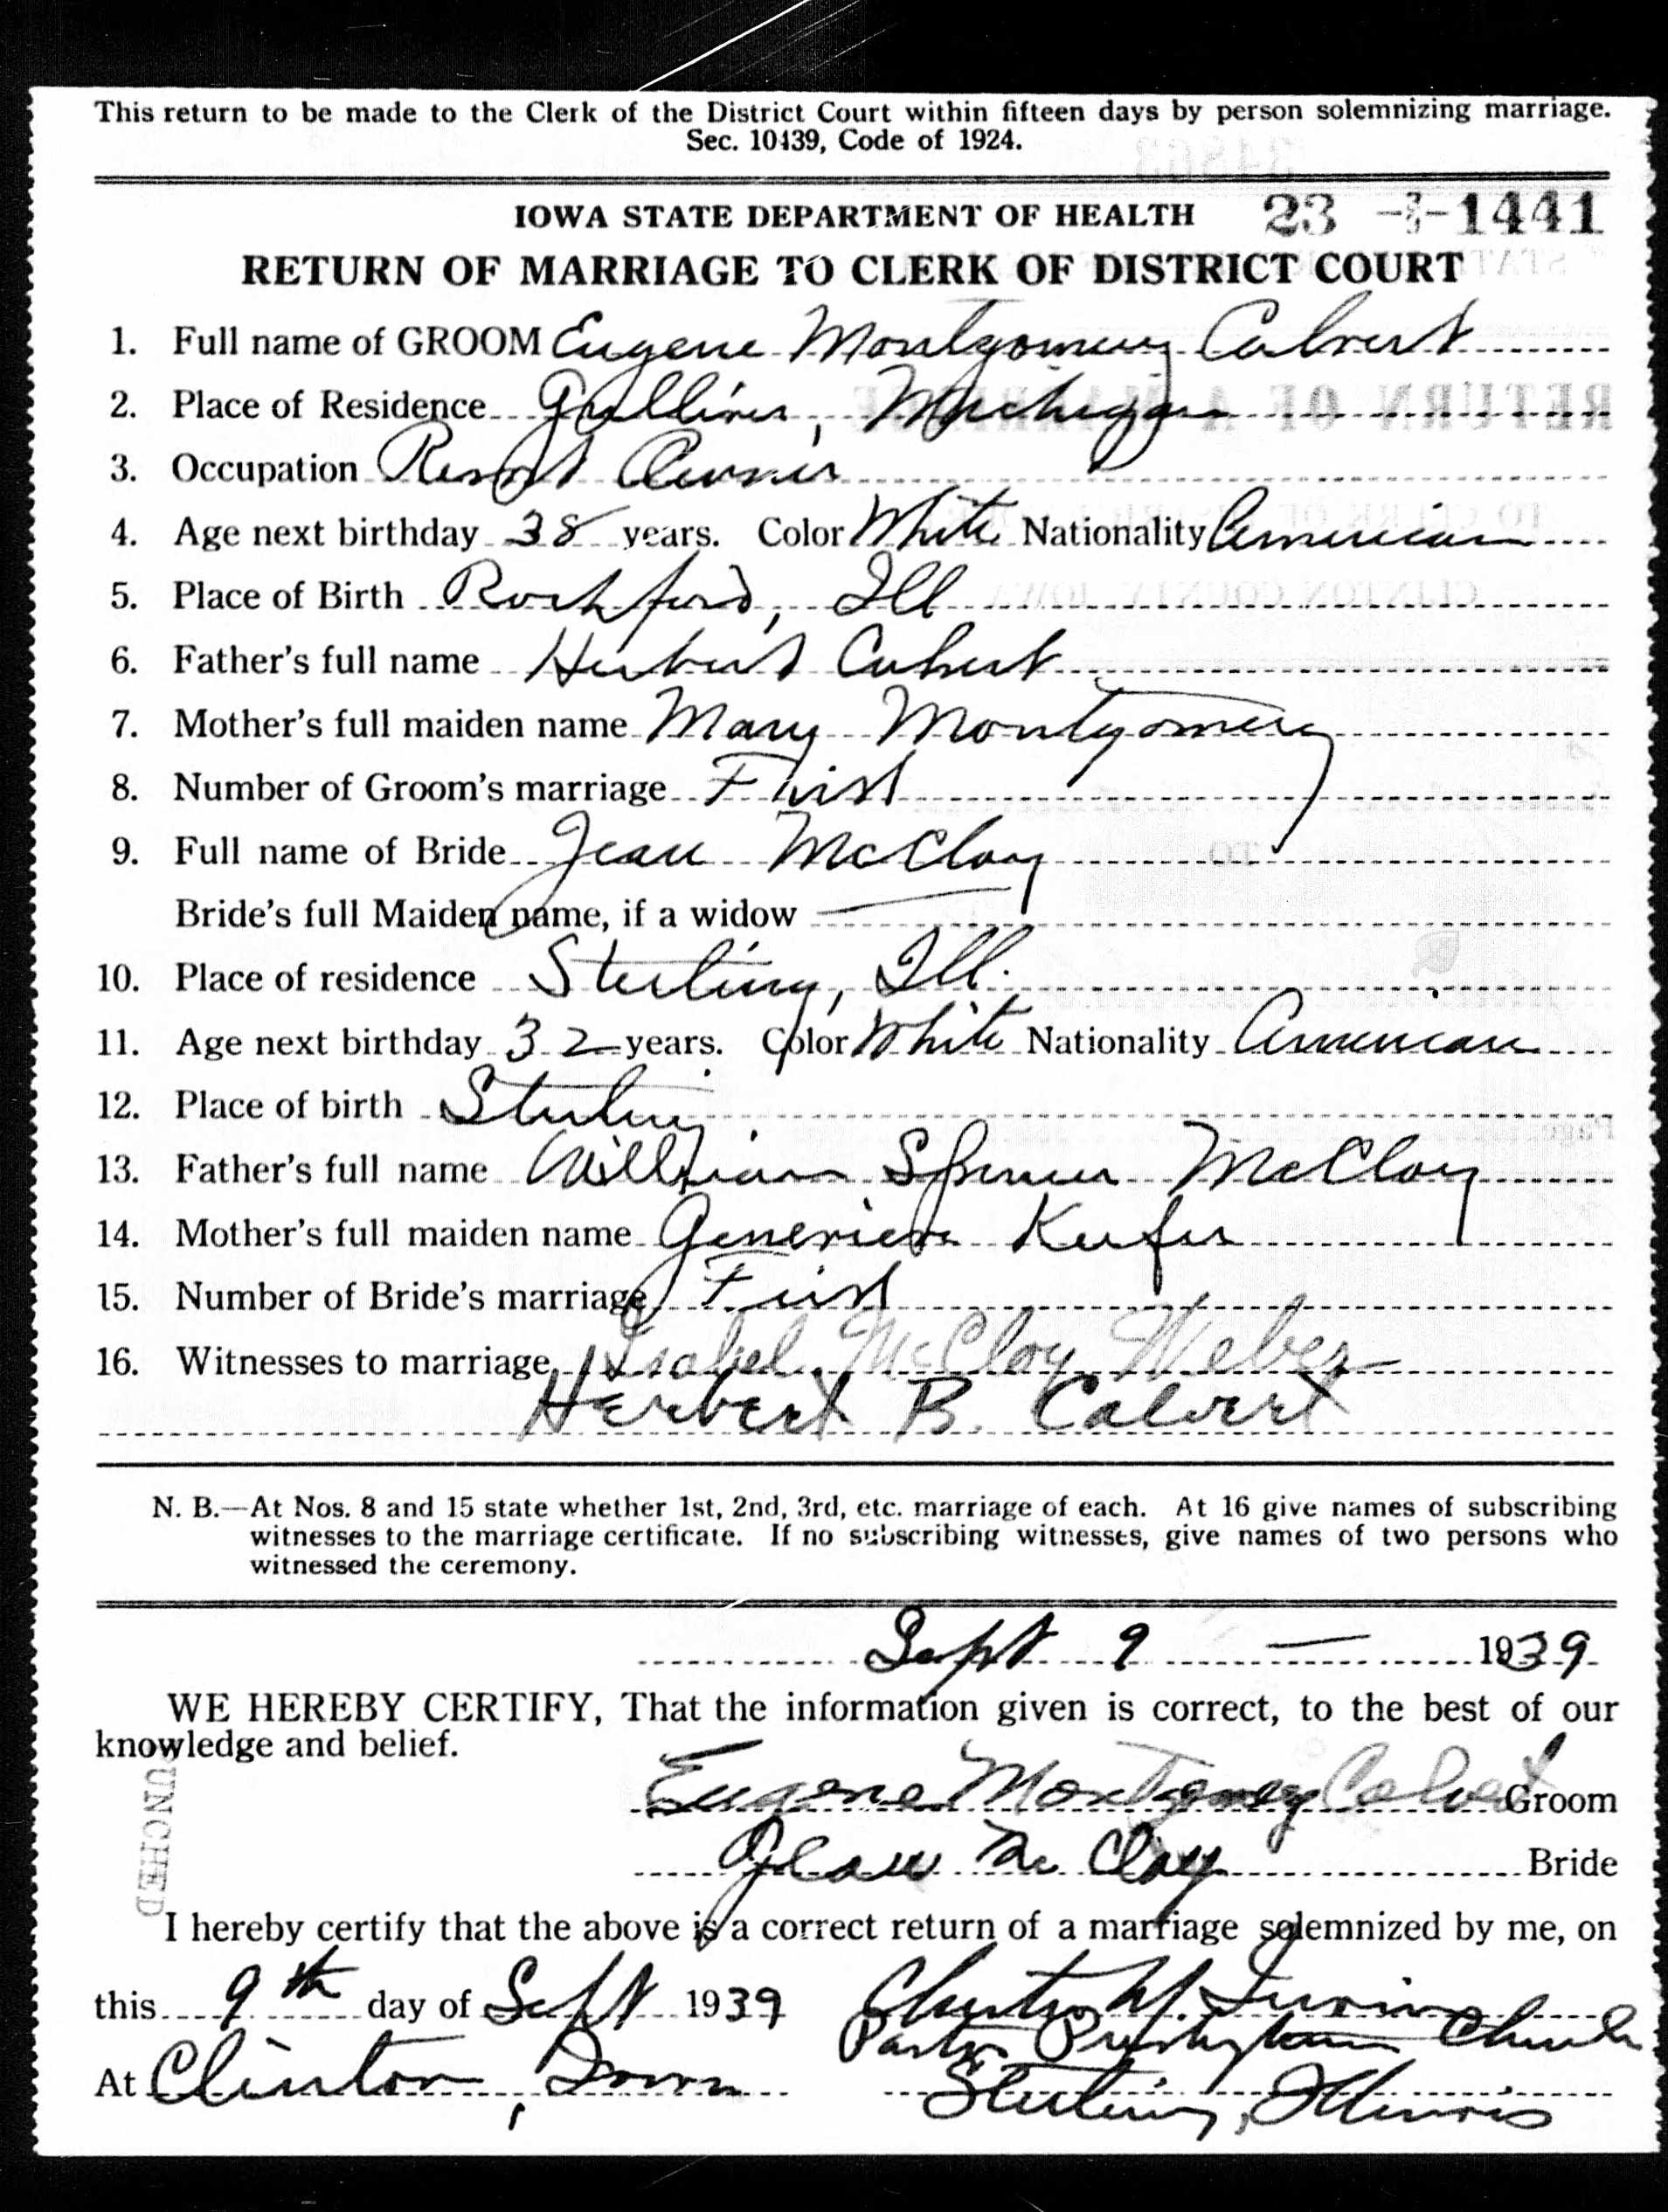 This return to be made to the Clerk of the District Court within fifteen days by person solemnizing marriage.
Sec. 10439, Code of 1924.
IOWA STATE DEPARTMENT OF HEALTH 23 - -1441
RETURN OF MARRIAGE TO CLERK OF DISTRICT COURT
1. Full name of GROOM Eugene Montgomery Calvert
2. Place of Residence Gulliver, Michigan
3. Occupation Resort Owner
4. Age next birthday 38 years. Color White Nationality American
5. Place of Birth Rockford, Ill
6. Father's full name Herbert Calvert
7. Mother's full maiden name Mary Montgomery
8. Number of Groom's marriage First
9. Full name of Bride Jean McCloy
Bride's full Maiden name, if a widow —
10. Place of residence Sterling, Ill.
11. Age next birthday 32 years. Color White Nationality American
12. Place of birth Sterling.
13. Father's full name William Spencer McCloy
14. Mother's full maiden name Genevieve Keefer
15. Number of Bride's marriage First
16. Witnesses to marriage Isabel McCloy Weber
Herbert B. Calvert
N. B.—At Nos. 8 and 15 state whether 1st, 2nd, 3rd, etc. marriage of each. At 16 give names of subscribing
witnesses to the marriage certificate. If no subscribing witnesses, give names of two persons who
witnessed the ceremony.
Sept 9 — 1939
WE HEREBY CERTIFY, That the information given is correct, to the best of our
knowledge and belief.
Eugene Montgomery Calvert Groom
Jean McCloy Bride
UNCHED
I hereby certify that the above is a correct return of a marriage solemnized by me, on
this 9th day of Sept 1939 M. Irving
Pastor Presbyterian Church
At Clinton, Iowa Sterling, Illinois